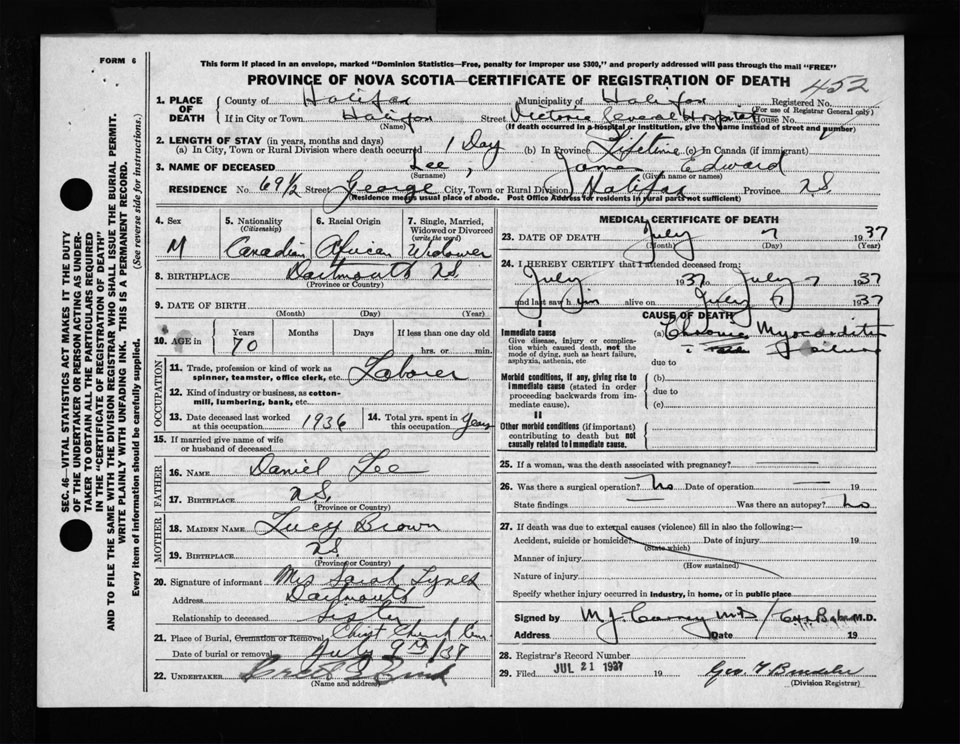 FORM 6
This form if placed in an envelope, marked "Dominion Statistics—Free, penalty for improper use $300," and properly addressed will pass through the mail "FREE"
PROVINCE OF NOVA SCOTIA—CERTIFICATE OF REGISTRATION OF DEATH
452
1. PLACE OF DEATH
County of Halifax Municipality of Halifax Registered No.
(For use of Registrar General only)
If in City or Town Halifax Street Victoria General Hospital House No.
(Name) (If death occurred in a hospital or institution, give the name instead of street and number)
2. LENGTH OF STAY (in years, months and days)
(a) In City, Town or Rural Division where death occurred 1 Day (b) In Province Lifetime (c) In Canada (if immigrant)
3. NAME OF DECEASED Lee, James Edward
(Surname) (Given name or names)
RESIDENCE No. 69½ Street George City, Town or Rural Division Halifax Province N.S.
(Residence means usual place of abode. Post Office Address for residents in rural parts not sufficient)
4. Sex
M
5. Nationality
(Citizenship)
Canadian
6. Racial Origin
African
7. Single, Married,
Widowed or Divorced
(write the word)
Widower
8. BIRTHPLACE Dartmouth N.S.
(Province or Country)
9. DATE OF BIRTH
(Month) (Day) (Year)
10. AGE in
Years Months Days If less than one day old
70 hrs. or min.
OCCUPATION
11. Trade, profession or kind of work as
spinner, teamster, office clerk, etc. Laborer
12. Kind of industry or business, as cotton-
mill, lumbering, bank, etc.
13. Date deceased last worked
at this occupation 1936
14. Total yrs. spent in
this occupation Years
15. If married give name of wife
or husband of deceased
FATHER
16. NAME Daniel Lee
17. BIRTHPLACE N.S.
(Province or Country)
MOTHER
18. MAIDEN NAME Lucy Brown
19. BIRTHPLACE N.S.
(Province or Country)
20. Signature of informant Mrs Sarah Tynes
Address Dartmouth
Relationship to deceased Sister
21. Place of Burial, Cremation or Removal Christ Church Cem.
Date of burial or removal July 9th/37
22. UNDERTAKER
(Name and address)
MEDICAL CERTIFICATE OF DEATH
23. DATE OF DEATH July 7 1937
(Month) (Day) (Year)
24. I HEREBY CERTIFY that I attended deceased from:
July 1937 to July 7 1937
and last saw him alive on July 7 1937
CAUSE OF DEATH
I
Immediate cause
Give disease, injury or complica-
tion which caused death, not the
mode of dying, such as heart failure,
asphyxia, asthenia, etc
(a) Chronic Myocarditis
Failure
due to
Morbid conditions, if any, giving rise to
immediate cause (stated in order
proceeding backwards from im-
mediate cause).
(b)
due to
(c)
II
Other morbid conditions (if important)
contributing to death but not
causally related to immediate cause.
25. If a woman, was the death associated with pregnancy?
26. Was there a surgical operation? No Date of operation 19
State findings Was there an autopsy? No
27. If death was due to external causes (violence) fill in also the following:—
Accident, suicide or homicide? Date of injury 19
(State which)
Manner of injury
(How sustained)
Nature of injury
Specify whether injury occurred in industry, in home, or in public place
Signed by M.D. M.D.
Address Date 19
28. Registrar's Record Number
29. Filed JUL 21 1937 19
(Division Registrar)
SEC. 46—VITAL STATISTICS ACT MAKES IT THE DUTY
OF THE UNDERTAKER OR PERSON ACTING AS UNDER-
TAKER TO OBTAIN ALL THE PARTICULARS REQUIRED
IN THE "CERTIFICATE OF REGISTRATION OF DEATH"
AND TO FILE THE SAME WITH THE DIVISION REGISTRAR WHO SHALL ISSUE THE BURIAL PERMIT.
WRITE PLAINLY WITH UNFADING INK. THIS IS A PERMANENT RECORD.
Every item of information should be carefully supplied. (See reverse side for instructions.)